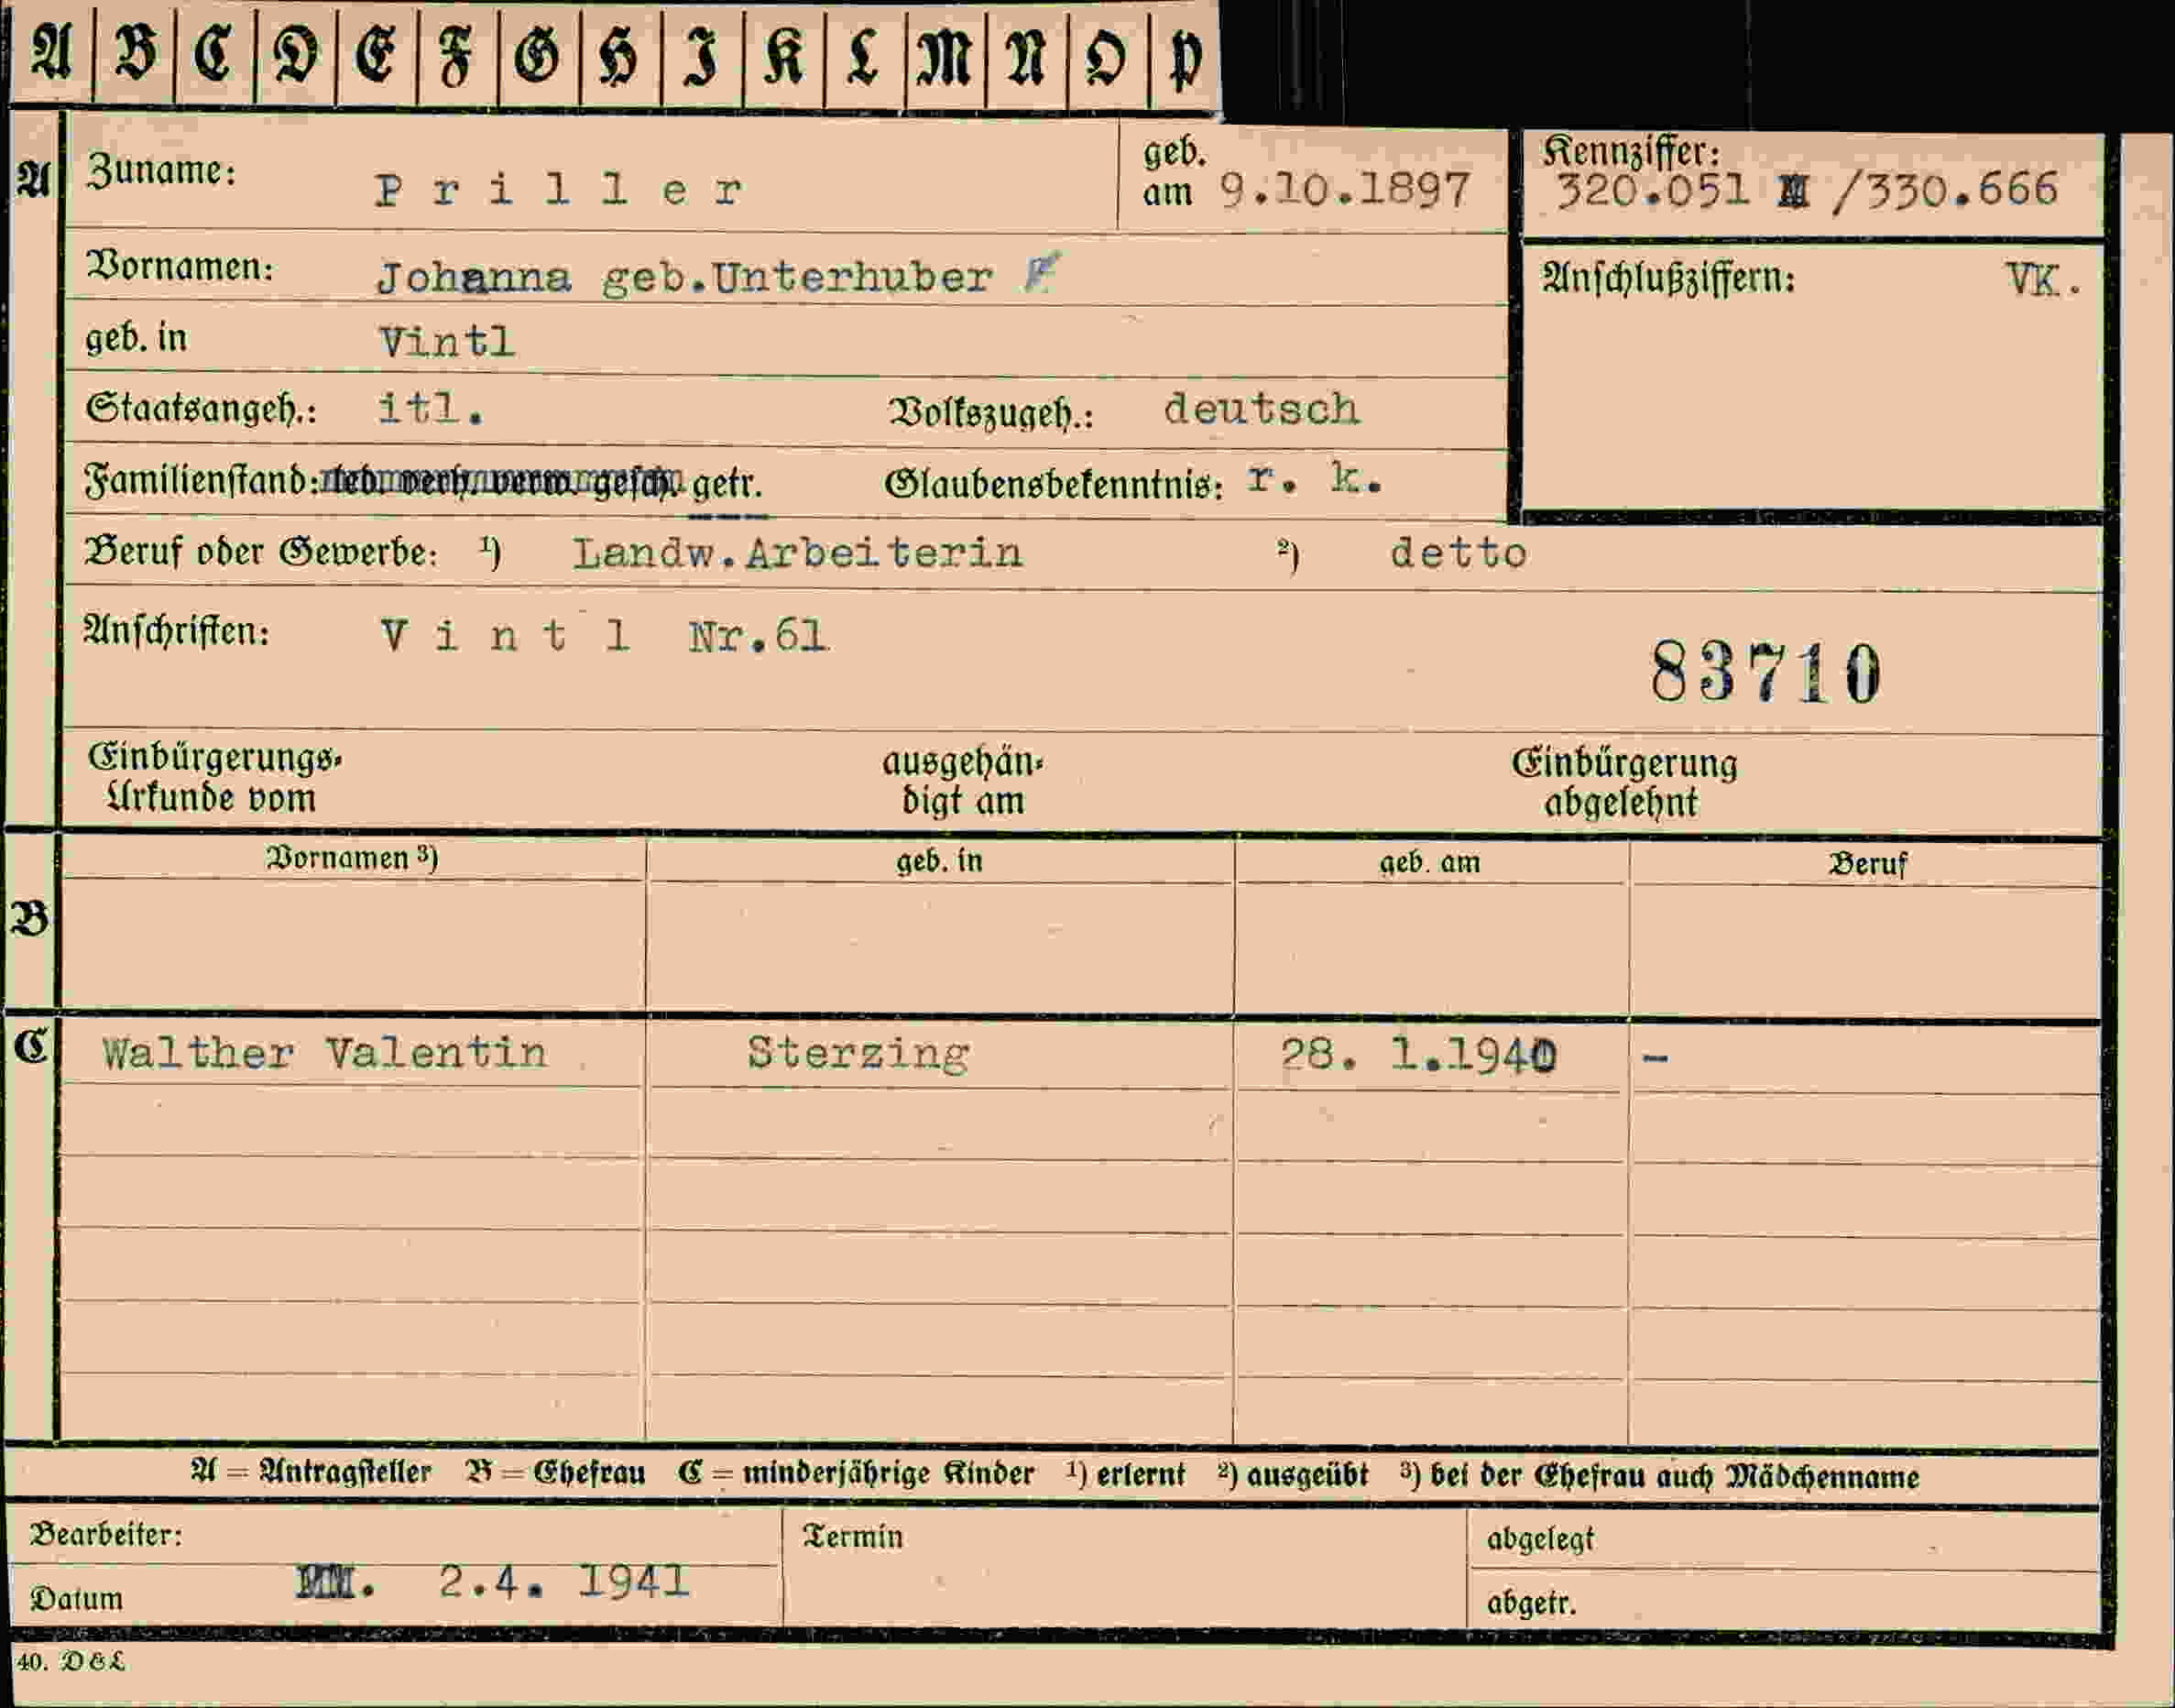 A B C D E F G H I K L M N O P
A Zuname: Priller geb. am 9.10.1897 Kennziffer: 320.051 /330.666
Vornamen: Johanna geb.Unterhuber Anschlußziffern: VK.
geb. in Vintl
Staatsangeh.: itl. Volkszugeh.: deutsch
Familienstand: led. verh. verw. gesch. getr. Glaubensbekenntnis: r. k.
Beruf oder Gewerbe: ¹) Landw.Arbeiterin ²) detto
Anschriften: Vintl Nr.61
83710
Einbürgerungs- ausgehän- Einbürgerung
Urkunde vom digt am abgelehnt
Vornamen ³) geb. in geb. am Beruf
B
C Walther Valentin Sterzing 28. 1.1940 -
A = Antragsteller B = Ehefrau C = minderjährige Kinder ¹) erlernt ²) ausgeübt ³) bei der Ehefrau auch Mädchenname
Bearbeiter: Termin abgelegt
Datum 2.4. 1941 abgetr.
40. D & L